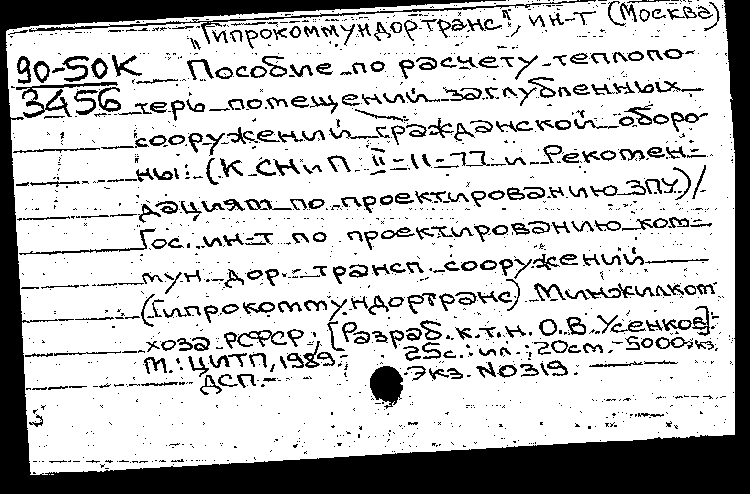 „Гипрокоммундортранс", ин-т (Москва)
90-50К Пособие по расчету теплопо-
3456 терь помещений заглубленных
сооружений гражданской оборо-
ны: (К СНиП II-11-77 и Рекомен-
дациям по проектированию ЗПУ) /
Гос. ин-т по проектированию ком-
мун. дор.-трансп. сооружений
(Гипрокоммундортранс) Минжилком
хоза РСФСР; [Разраб. к.т.н. О.В. Усенков].-
М.: ЦИТП, 1989.- 25с.: ил.; 20см.- 5000экз.
ДСП.- Экз. N0319.